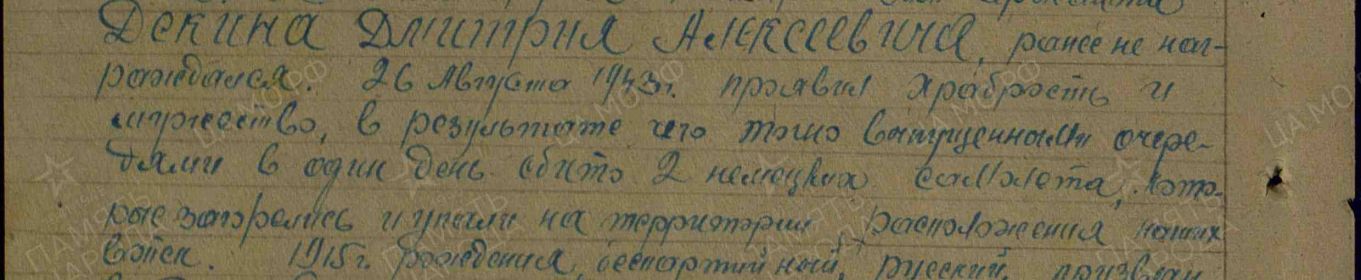 Декина Дмитрия Алексеевича, ранее не наг-
раждался. 26 Августа 1943г. проявил храбрость и
мужество, в результате его точно выпущенными очере-
дями в один день сбито 2 немецких самолета, кото-
рые загорелись и упали на территории расположения наших
войск. 1915г. рождения, беспартийный, русский, призван